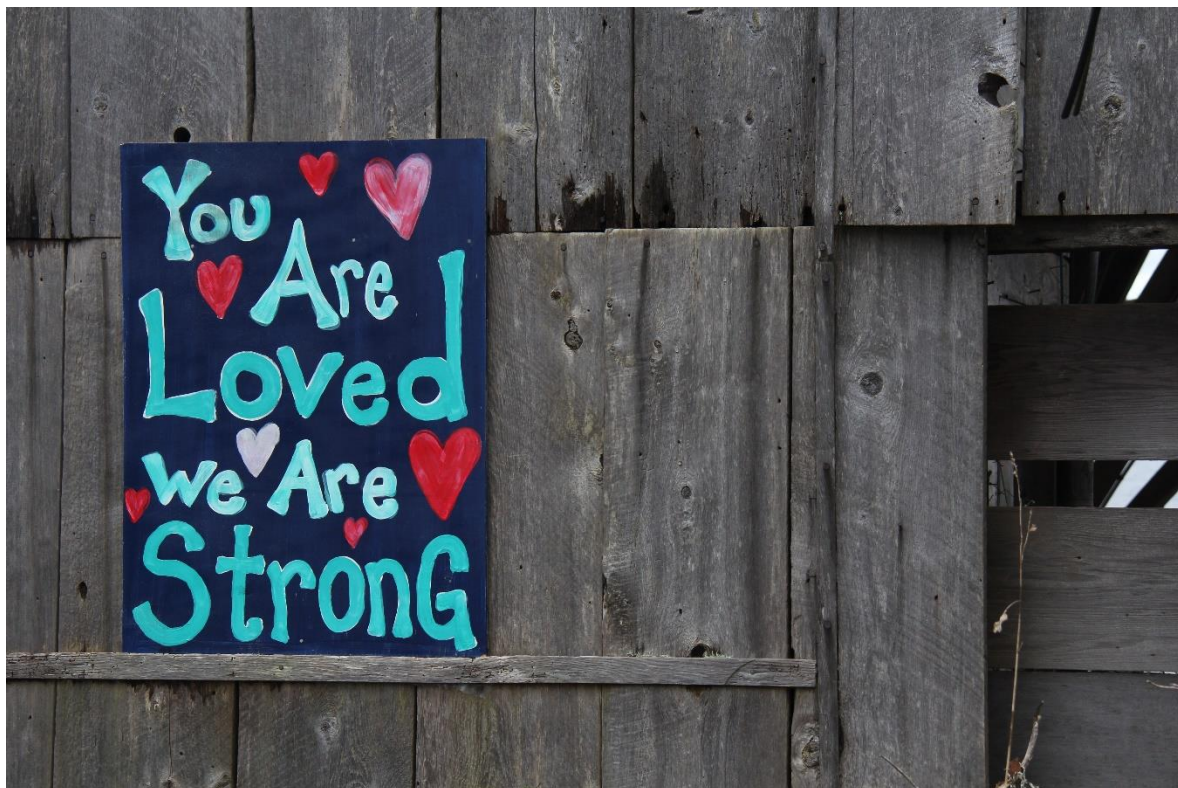 You
Are
Loved
we Are
StronG